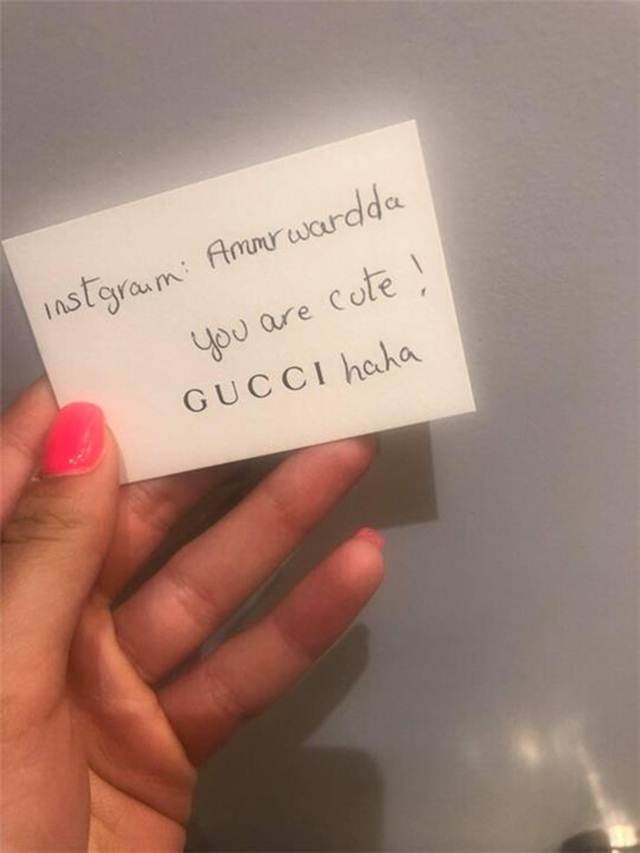 instgram: Ammrwardda
you are cute !
GUCCI haha